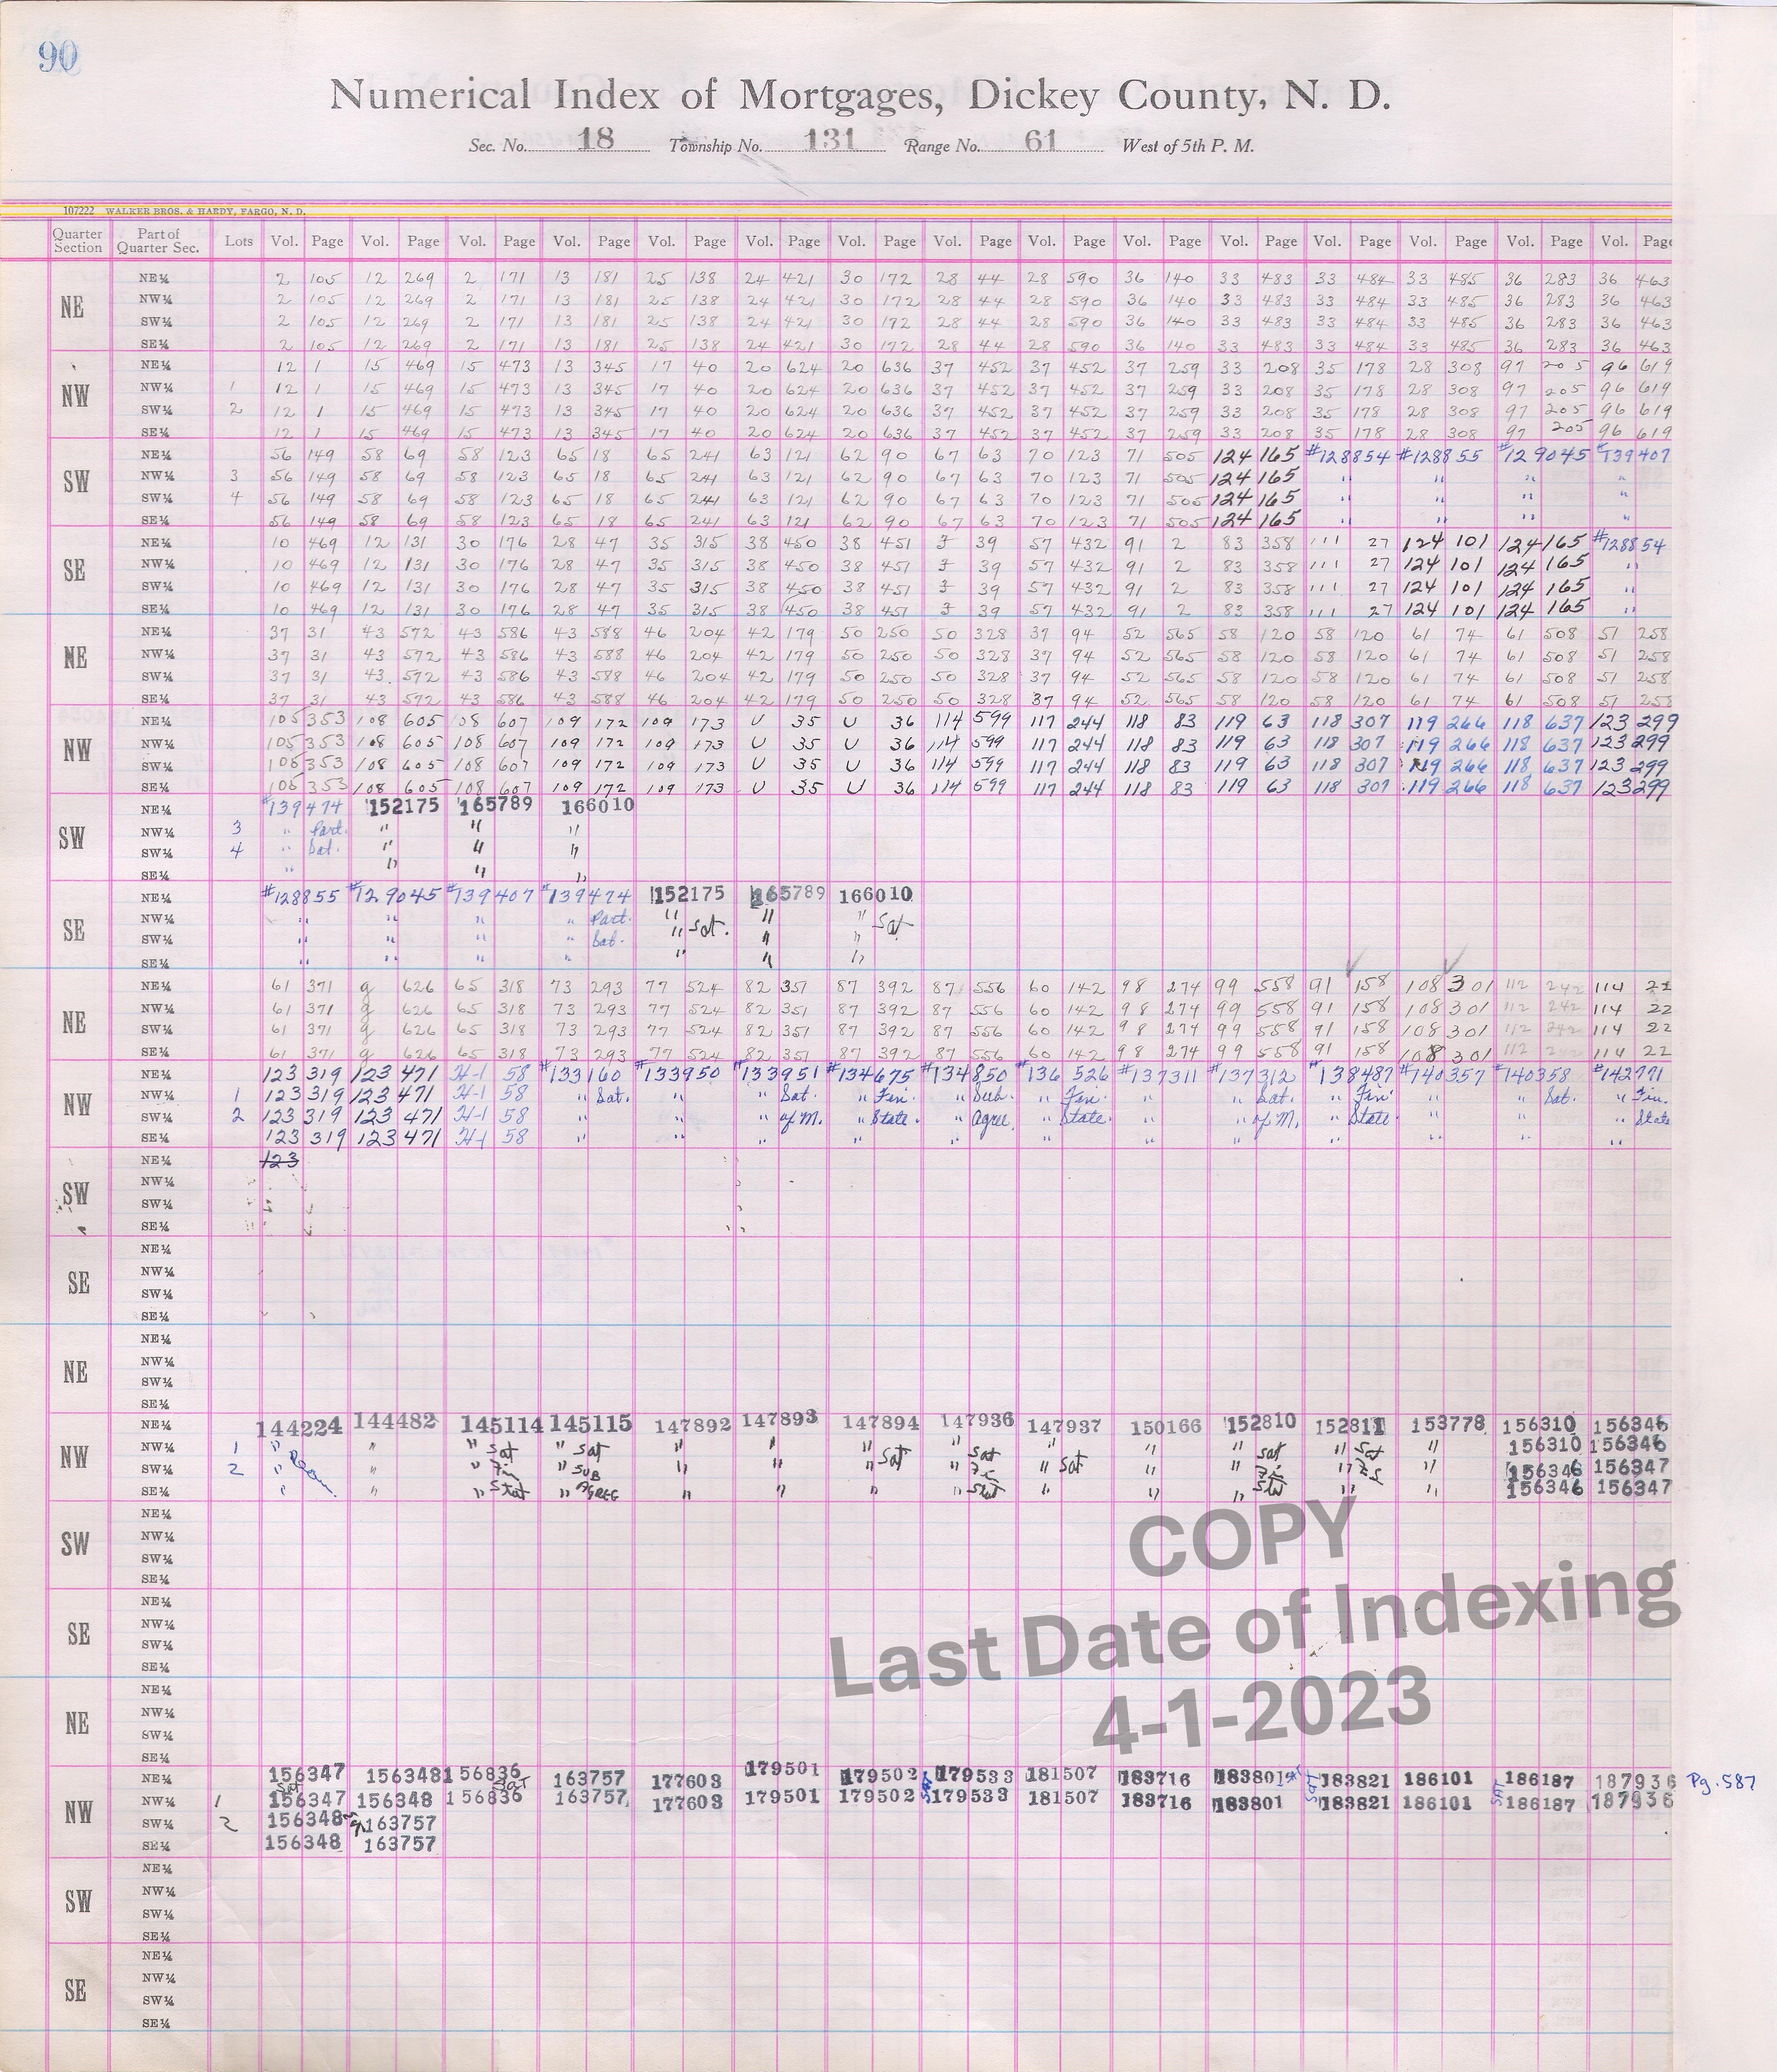 90
Numerical Index of Mortgages, Dickey County, N. D.
Sec. No. 18 Township No. 131 Range No. 61 West of 5th P. M.
107222 WALKER BROS. & HARDY, FARGO, N. D.
Quarter Section Part of Quarter Sec. Lots Vol. Page Vol. Page Vol. Page Vol. Page Vol. Page Vol. Page Vol. Page Vol. Page Vol. Page Vol. Page Vol. Page Vol. Page Vol. Page Vol. Page Vol. Page
NE
NE¼ 2 105 12 269 2 171 13 181 25 138 24 421 30 172 28 44 28 590 36 140 33 483 33 484 33 485 36 283 36 463
NW¼ 2 105 12 269 2 171 13 181 25 138 24 421 30 172 28 44 28 590 36 140 33 483 33 484 33 485 36 283 36 463
SW¼ 2 105 12 269 2 171 13 181 25 138 24 421 30 172 28 44 28 590 36 140 33 483 33 484 33 485 36 283 36 463
SE¼ 2 105 12 269 2 171 13 181 25 138 24 421 30 172 28 44 28 590 36 140 33 483 33 484 33 485 36 283 36 463
NW
NE¼ 12 1 15 469 15 473 13 345 17 40 20 624 20 636 37 452 37 452 37 259 33 208 35 178 28 308 97 205 96 619
NW¼ 1 12 1 15 469 15 473 13 345 17 40 20 624 20 636 37 452 37 452 37 259 33 208 35 178 28 308 97 205 96 619
SW¼ 2 12 1 15 469 15 473 13 345 17 40 20 624 20 636 37 452 37 452 37 259 33 208 35 178 28 308 97 205 96 619
SE¼ 12 1 15 469 15 473 13 345 17 40 20 624 20 636 37 452 37 452 37 259 33 208 35 178 28 308 97 205 96 619
SW
NE¼ 56 149 58 69 58 123 65 18 65 241 63 121 62 90 67 63 70 123 71 505 124 165 #128854 #128855 #129045 #139407
NW¼ 3 56 149 58 69 58 123 65 18 65 241 63 121 62 90 67 63 70 123 71 505 124 165 " " " "
SW¼ 4 56 149 58 69 58 123 65 18 65 241 63 121 62 90 67 63 70 123 71 505 124 165 " " " "
SE¼ 56 149 58 69 58 123 65 18 65 241 63 121 62 90 67 63 70 123 71 505 124 165 " " " "
SE
NE¼ 10 469 12 131 30 176 28 47 35 315 38 450 38 451 39 57 432 91 2 83 358 111 27 124 101 124 165 #128854
NW¼ 10 469 12 131 30 176 28 47 35 315 38 450 38 451 39 57 432 91 2 83 358 111 27 124 101 124 165 "
SW¼ 10 469 12 131 30 176 28 47 35 315 38 450 38 451 39 57 432 91 2 83 358 111 27 124 101 124 165 "
SE¼ 10 469 12 131 30 176 28 47 35 315 38 450 38 451 39 57 432 91 2 83 358 111 27 124 101 124 165 "
NE
NE¼ 37 31 43 572 43 586 43 588 46 204 42 179 50 250 50 328 37 94 52 565 58 120 58 120 61 74 61 508 51 258
NW¼ 37 31 43 572 43 586 43 588 46 204 42 179 50 250 50 328 37 94 52 565 58 120 58 120 61 74 61 508 51 258
SW¼ 37 31 43 572 43 586 43 588 46 204 42 179 50 250 50 328 37 94 52 565 58 120 58 120 61 74 61 508 51 258
SE¼ 37 31 43 572 43 586 43 588 46 204 42 179 50 250 50 328 37 94 52 565 58 120 58 120 61 74 61 508 51 258
NW
NE¼ 105 353 108 605 108 607 109 172 109 173 U 35 U 36 114 599 117 244 118 83 119 63 118 307 119 266 118 637 123 299
NW¼ 105 353 108 605 108 607 109 172 109 173 U 35 U 36 114 599 117 244 118 83 119 63 118 307 119 266 118 637 123 299
SW¼ 105 353 108 605 108 607 109 172 109 173 U 35 U 36 114 599 117 244 118 83 119 63 118 307 119 266 118 637 123 299
SE¼ 105 353 108 605 108 607 109 172 109 173 U 35 U 36 114 599 117 244 118 83 119 63 118 307 119 266 118 637 123 299
SW
NE¼ #139474 152175 165789 166010
NW¼ 3 " Part. " " "
SW¼ 4 " Sat. " " "
SE¼ " " " "
SE
NE¼ #128855 #129045 #139407 #139474 152175 165789 166010
NW¼ " " " " Part. " " " Sat
SW¼ " " " " Sat. " Sat. " "
SE¼ " " " " " " "
NE
NE¼ 61 371 g 626 65 318 73 293 77 524 82 351 87 392 87 556 60 142 98 274 99 558 91 158 108 301 112 242 114 22
NW¼ 61 371 g 626 65 318 73 293 77 524 82 351 87 392 87 556 60 142 98 274 99 558 91 158 108 301 112 242 114 22
SW¼ 61 371 g 626 65 318 73 293 77 524 82 351 87 392 87 556 60 142 98 274 99 558 91 158 108 301 112 242 114 22
SE¼ 61 371 g 626 65 318 73 293 77 524 82 351 87 392 87 556 60 142 98 274 99 558 91 158 108 301 112 242 114 22
NW
NE¼ 123 319 123 471 H-1 58 #133160 #133950 #133951 #134675 #134850 #136526 #137311 #137312 #138487 #140357 #140358 #142771
NW¼ 1 123 319 123 471 H-1 58 " Sat. " " Sat. " Fin. " Sub. " Fin. " " Sat. " Fin. " " Sat. " Fin.
SW¼ 2 123 319 123 471 H-1 58 " " " of M. " State. " Agree. " State. " " of M. " State. " " " State
SE¼ 123 319 123 471 H-1 58 " " " " " " " " " " " "
SW
NE¼ 123
NW¼
SW¼
SE¼
SE
NE¼
NW¼
SW¼
SE¼
NE
NE¼
NW¼
SW¼
SE¼
NW
NE¼ 144224 144482 145114 145115 147892 147893 147894 147936 147937 150166 152810 152811 153778 156310 156346
NW¼ 1 " " " Sat " Sat " " " Sat " Sat " " " Sat " Sat " 156310 156346
SW¼ 2 " " " Fin " SUB " " " " Fin " Sat " " Fin " F.S " 156346 156347
SE¼ " " " Stat " AGREE " " " " Stat " " " Stat " " 156346 156347
SW
NE¼
NW¼
SW¼
SE¼
SE
NE¼
NW¼
SW¼
SE¼
COPY
Last Date of Indexing
4-1-2023
NE
NE¼
NW¼
SW¼
SE¼
NW
NE¼ 156347 Sat 156348 156836 Sat 163757 177603 179501 179502 179533 181507 183716 183801 183821 186101 186187 187936 Pg. 587
NW¼ 1 156347 156348 156836 163757 177603 179501 179502 179533 181507 183716 183801 183821 186101 186187 187936
SW¼ 2 156348 163757
SE¼ 156348 163757
SW
NE¼
NW¼
SW¼
SE¼
SE
NE¼
NW¼
SW¼
SE¼